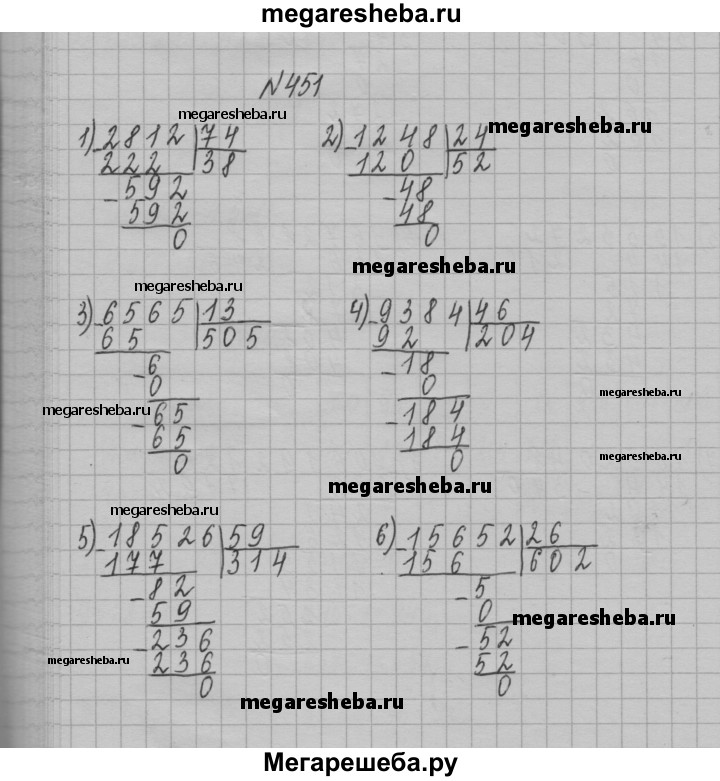 megaresheba.ru
№451
megaresheba.ru
1) -2812 | 74
222 | 38
-592
592
0
megaresheba.ru
2) -1248 | 24
120 | 52
-48
48
0
megaresheba.ru
megaresheba.ru
3) -6565 | 13
65 | 505
-6
0
megaresheba.ru
-65
65
0
4) -9384 | 46
92 | 204
-18
0
megaresheba.ru
-184
184
0
megaresheba.ru
megaresheba.ru
megaresheba.ru
5) -18526 | 59
177 | 314
-82
59
-236
megaresheba.ru
236
0
6) -15652 | 26
156 | 602
-5
0
megaresheba.ru
-52
52
0
megaresheba.ru
Мегарешеба.ру